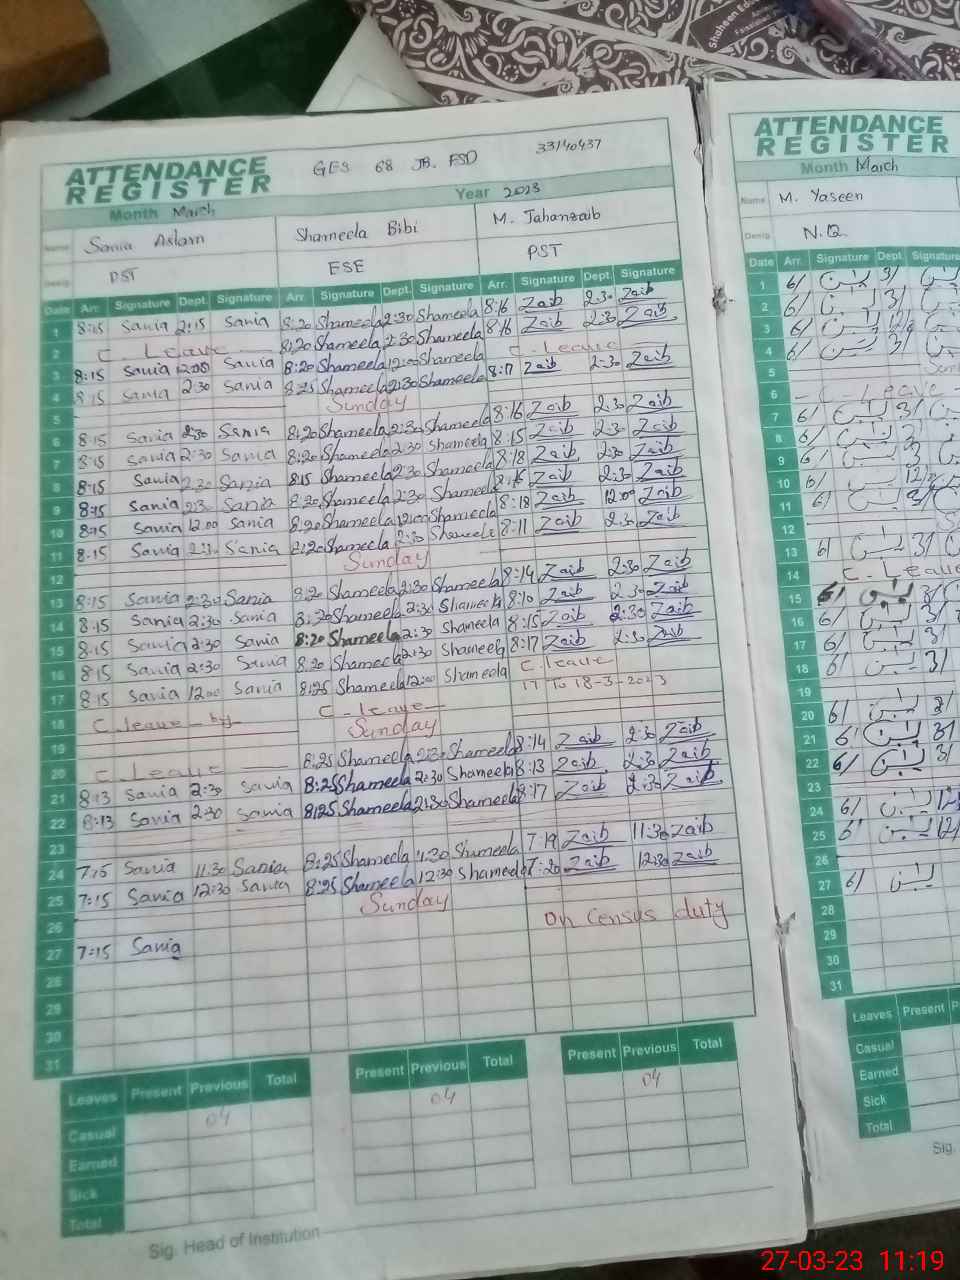 Shaheen Ed
ATTENDANCE
REGISTER
GES 68 JB. FSD
33140437
Month March
Year 2023
Name
Sania Aslam
Shameela Bibi
M. Jahanzaib
Desig.
PST
ESE
PST
Date Arr. Signature Dept. Signature Arr. Signature Dept. Signature Arr. Signature Dept. Signature
1 8:15 Sania 2:15 Sania 8:20 Shameela 2:30 Shameela 8:16 Zaib 2:30 Zaib
2 C Leave 8:20 Shameela 2:30 Shameela 8:16 Zaib 2:30 Zaib
3 8:15 Sania 12:00 Sania 8:20 Shameela 12:00 Shameela C. Leave
4 8:15 Sania 2:30 Sania 8:25 Shameela 2:30 Shameela 8:17 Zaib 2:30 Zaib
5 Sunday
6 8:15 Sania 2:30 Sania 8:20 Shameela 2:30 Shameela 8:16 Zaib 2:30 Zaib
7 8:15 Sania 2:30 Sania 8:20 Shameela 2:30 Shameela 8:15 Zaib 2:30 Zaib
8 8:15 Sania 2:30 Sania 8:15 Shameela 2:30 Shameela 8:18 Zaib 2:30 Zaib
9 8:15 Sania 2:30 Sania 8:20 Shameela 2:30 Shameela 8:16 Zaib 2:30 Zaib
10 8:15 Sania 12:00 Sania 8:20 Shameela 12:00 Shameela 8:18 Zaib 12:00 Zaib
11 8:15 Sania 2:30 Sania 8:20 Shameela 2:30 Shameela 8:11 Zaib 2:30 Zaib
12 Sunday
13 8:15 Sania 2:30 Sania 8:20 Shameela 2:30 Shameela 8:14 Zaib 2:30 Zaib
14 8:15 Sania 2:30 Sania 8:20 Shameela 2:30 Shameela 8:10 Zaib 2:30 Zaib
15 8:15 Sania 2:30 Sania 8:20 Shameela 2:30 Shameela 8:15 Zaib 2:30 Zaib
16 8:15 Sania 2:30 Sania 8:20 Shameela 2:30 Shameela 8:17 Zaib 2:30 Zaib
17 8:15 Sania 12:00 Sania 8:25 Shameela 12:00 Shameela C. leave
18 C. leave C - leave 17 To 18-3-2023
19 Sunday
20 C. Leave 8:25 Shameela 2:30 Shameela 8:14 Zaib 2:30 Zaib
21 8:13 Sania 2:30 Sania 8:25 Shameela 2:30 Shameela 8:13 Zaib 2:30 Zaib
22 8:13 Sania 2:30 Sania 8:25 Shameela 2:30 Shameela 8:17 Zaib 2:30 Zaib
23
24 7:15 Sania 11:30 Sania 8:25 Shameela 11:30 Shameela 7:19 Zaib 11:30 Zaib
25 7:15 Sania 12:30 Sania 8:25 Shameela 12:30 Shameela 7:20 Zaib 12:30 Zaib
26 Sunday
27 7:15 Sania On Census duty
28
29
30
31
Leaves Present Previous Total Present Previous Total Present Previous Total
Casual 04 04 04
Earned
Sick
Total
Sig. Head of Institution
ATTENDANCE
REGISTER
Month March
Name M. Yaseen
Desig. N.Q.
Date Arr. Signature Dept. Signature
1
2
3
4
5
6 - C - Leave -
7
8
9
10
11
12
13
14 C. Leave
15
16
17
18
19
20
21
22
23
24
25
26
27
28
29
30
31
Leaves Present
Casual
Earned
Sick
Total
Sig.
27-03-23 11:19